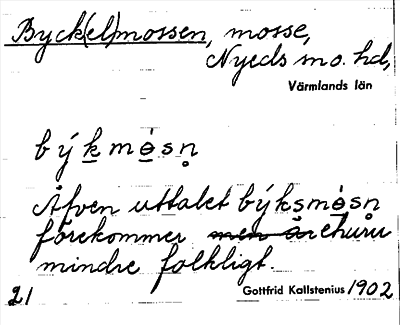 Byck(el)mossen, mosse,
Nyeds s n o. hd,
Värmlands län
býkmèsn̥
Äfven uttalet býksmèsn̥
förekommer men är ehuru
mindre folkligt.
21 Gottfrid Kallstenius 1902